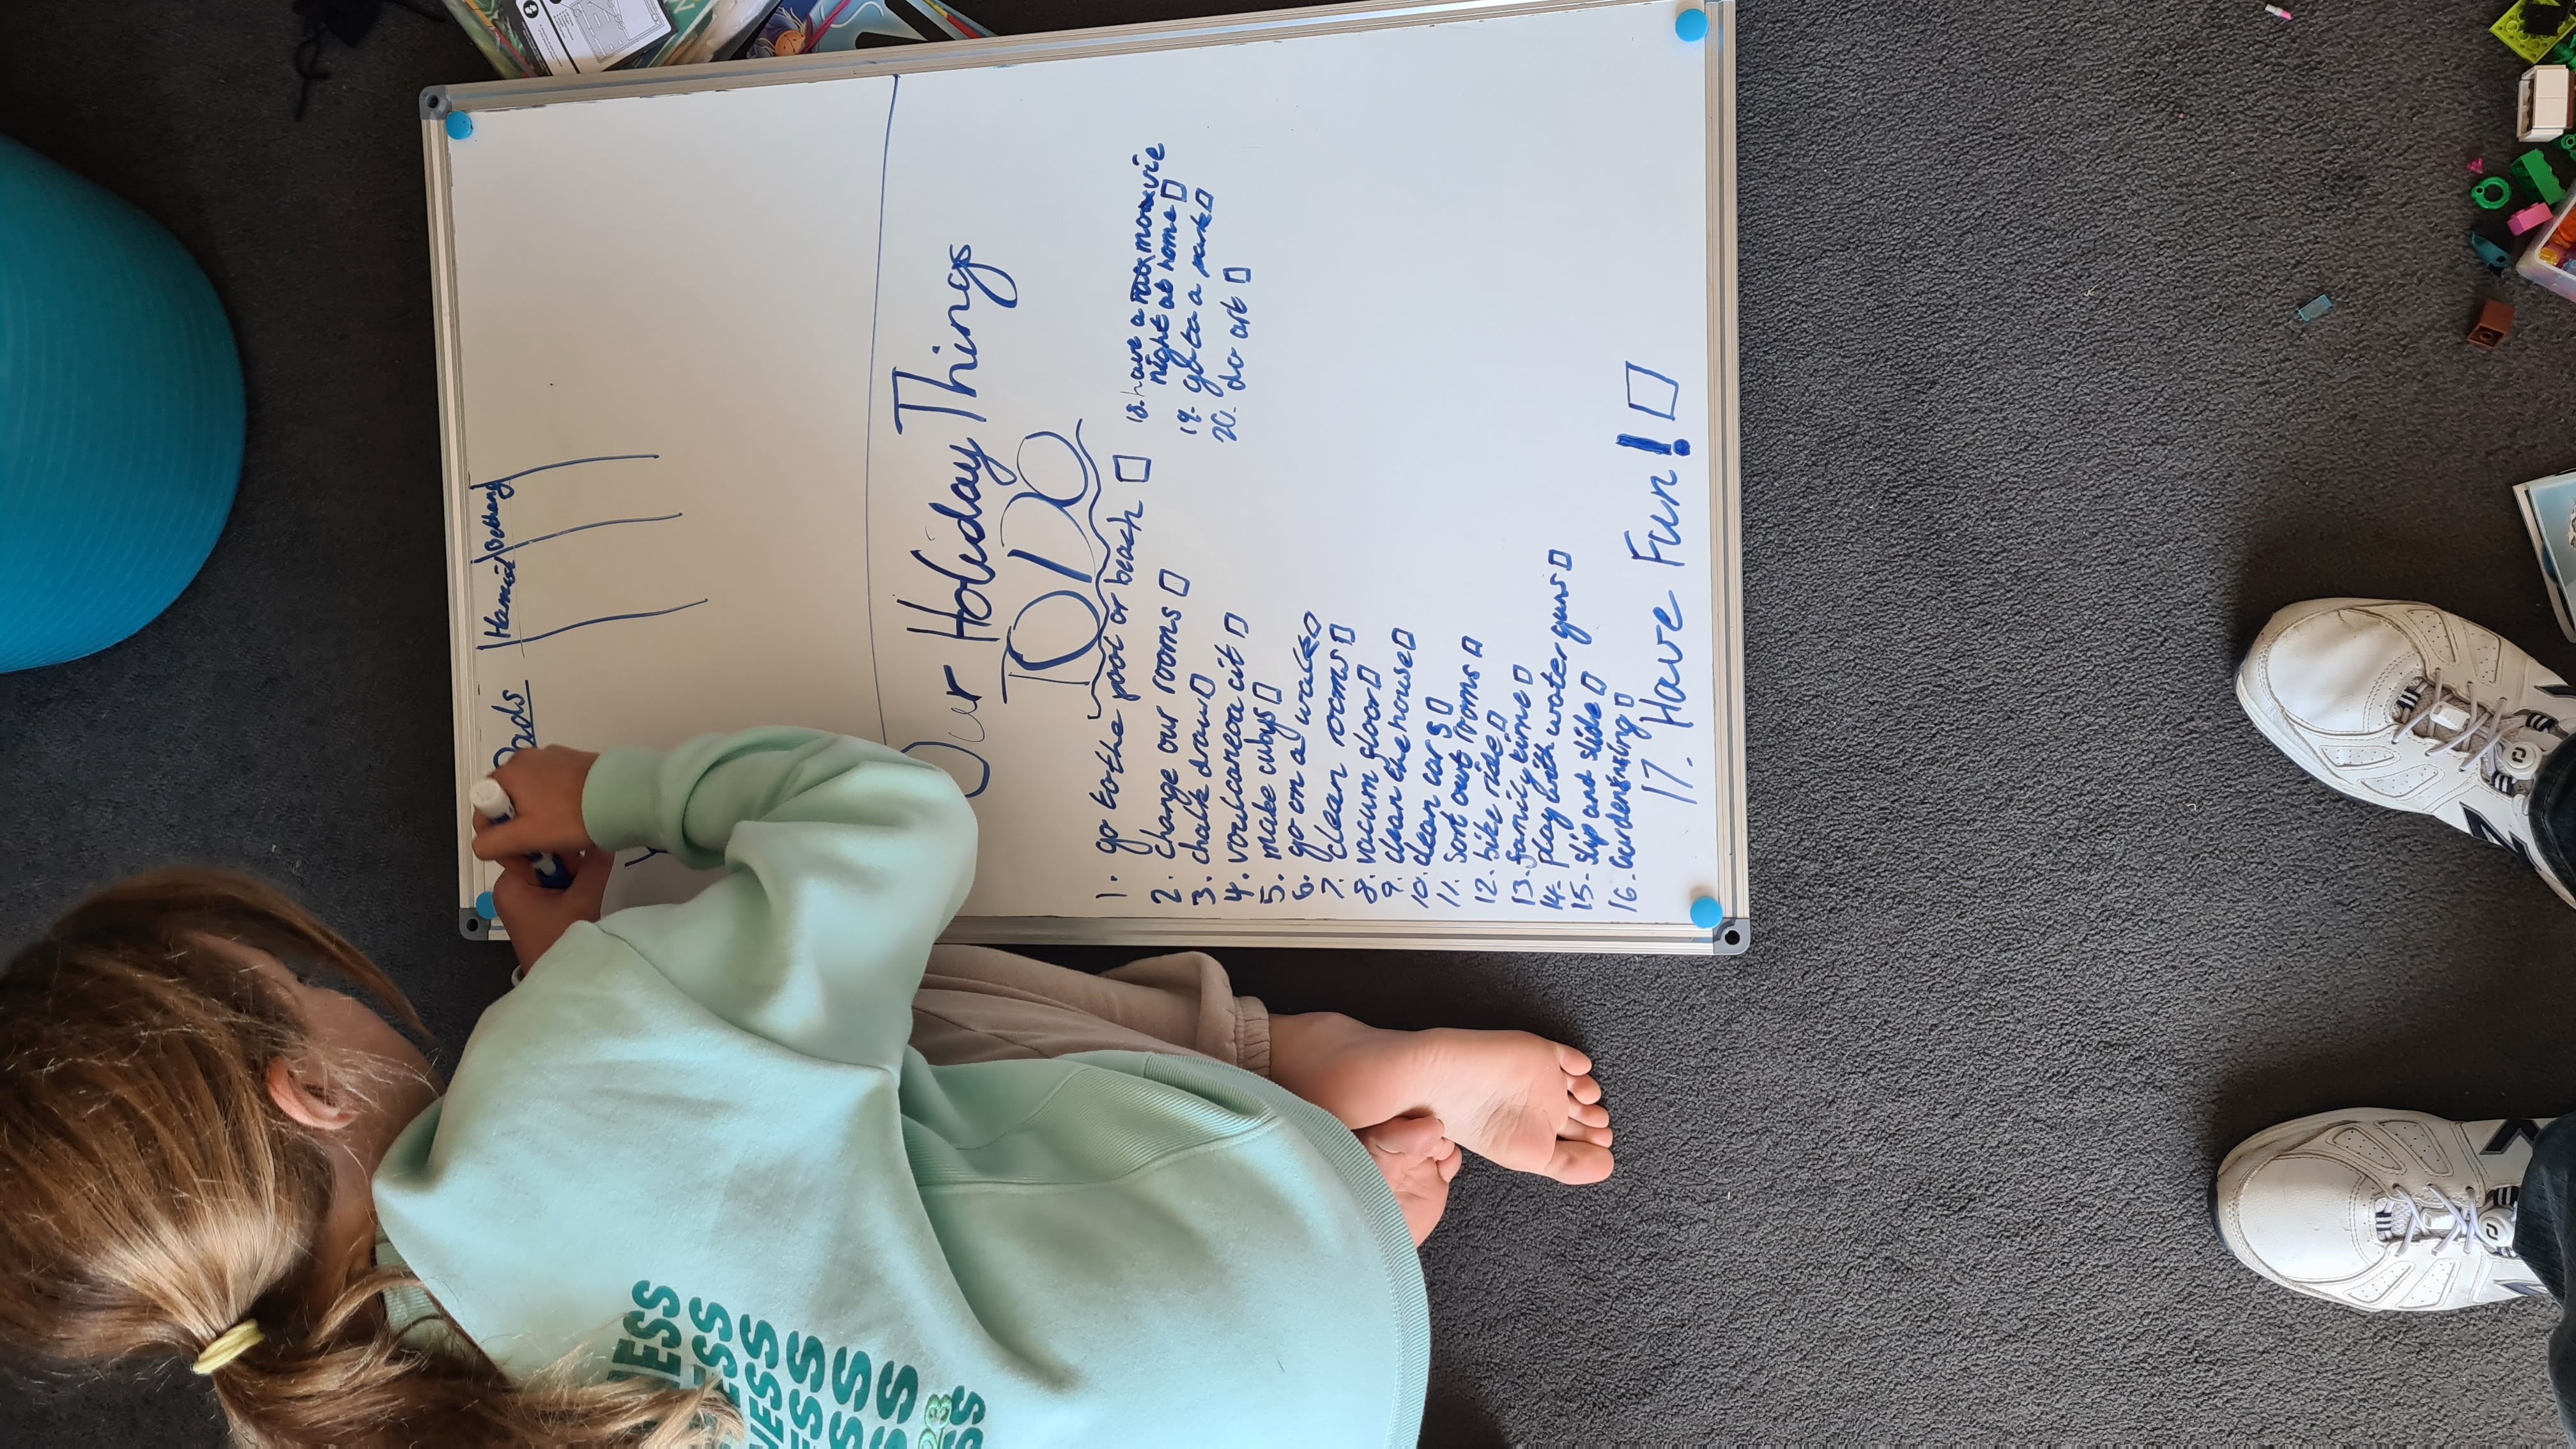 Dads Hamish Bethany
Our Holiday Things
TODO
1. go to the pool or beach
2. change our rooms
3. chalk draw
4. voulcaneoa cit
5. make cubys
6. go on a walk
7. clean rooms
8. vacum floor
9. clean the house
10. clean cars
11. sort out froms
12. bike ride
13. family time
14. play with water guns
15. slip and slide
16. Gardensning
17. Have Fun!
18. have a movie
night at home
19. go to a park
20. do art
NESS
NESS
NESS
ESS
SS
SS
23 SS